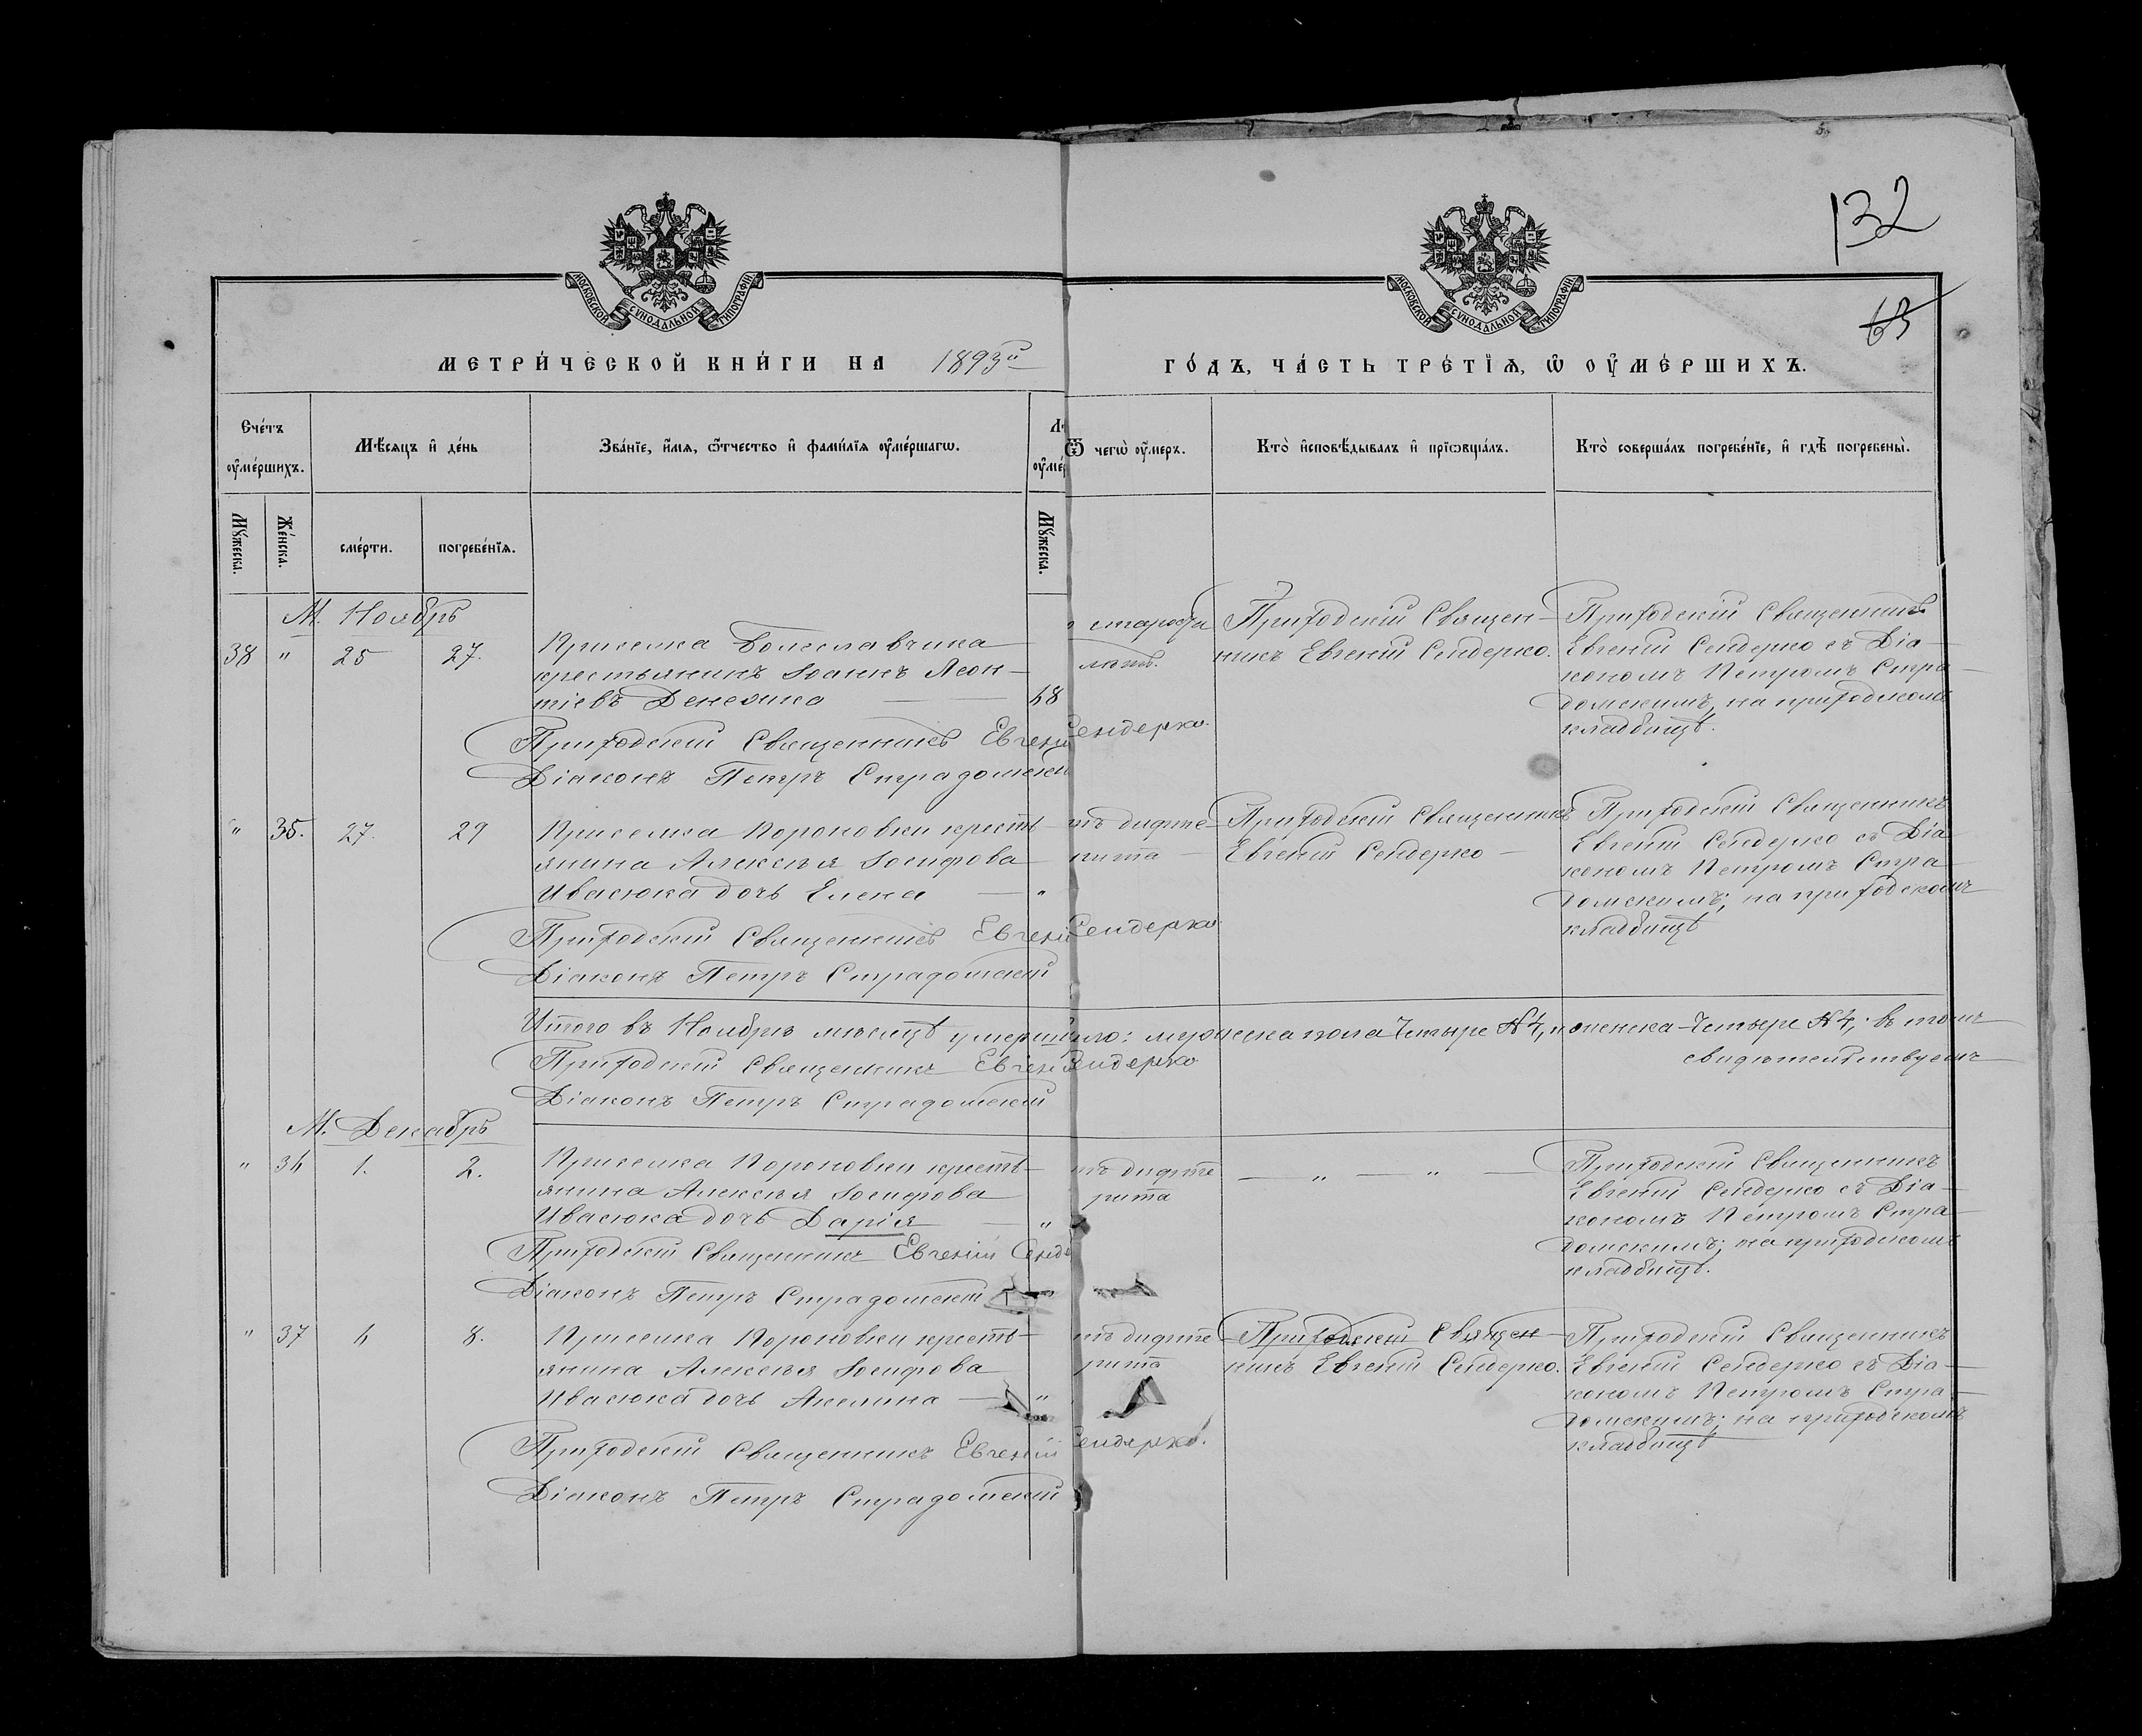 132
63
МОСКОВСКОЙ СѴНОДАЛЬНОЙ ТИПОГРАФІИ
МОСКОВСКОЙ СѴНОДАЛЬНОЙ ТИПОГРАФІИ
МЕТРИ́ЧЕСКОЙ КНИ́ГИ НА 1893й
ГО́ДЪ, ЧА́СТЬ ТРЕ́ТІѦ, Ѡ҆ ОУ҆МЕ́РШИХЪ.
Сче́тъ оу҆ме́ршихъ.
Мѣ́сѧцъ и҆ де́нь
Зва́нїе, и҆́мѧ, ѻ҆́тчество и҆ фами́лїѧ оу҆ме́ршагѡ.
Ѿ чегѡ̀ оу҆́меръ.
Кто̀ и҆сповѣ́дывалъ и҆ прїѡбща́лъ.
Кто̀ соверша́лъ погребе́нїе, и҆ гдѣ̀ погребены̀.
Мꙋ́жеска.
Же́нска.
сме́рти.
погребе́нїѧ.
Мꙋ́жеска.
М. Ноябрь
38 " 25 27.
крестьянинъ Іоаннъ Леон-
тіевъ
68
Приходскій Священ-
никъ Евгеній Сендерко.
Приходскій Священникъ
Евгеній Сендерко съ Діа-
кономъ Петромъ Стра-
домскимъ, на приходскомъ
кладбищѣ.
Приходскій Священникъ Евгеній Сендерко
Діаконъ Петръ Страдомскій
" 35. 27. 29
Приселка Короновки кресть-
янина Алексѣя Іосифова
Ивасюка дочь Елена — "
тъ дифте-
рита —
Приходскій Священникъ
Евгеній Сендерко —
Приходскій Священникъ
Евгеній Сендерко съ Діа-
кономъ Петромъ Стра-
домскимъ; на приходскомъ
кладбищѣ
Приходскій Священникъ Евгеній Сендерко
Діаконъ Петръ Страдомскій
Итого въ Ноябрѣ мѣсяцѣ умершихъ: мужеска пола четыре № 4, и женска – четыре № 4, въ томъ
свидѣтельствуемъ
Приходскій Священникъ Евгеній Сендерко
Діаконъ Петръ Страдомскій
М. Декабрь
" 36 1. 2.
Приселка Короновки кресть-
янина Алексѣя Іосифова
Ивасюка дочь Дарія — "
тъ дифте
рита
— " — " —
Приходскій Священникъ
Евгеній Сендерко съ Діа-
кономъ Петромъ Стра-
домскимъ; на приходскомъ
кладбищѣ.
Приходскій Священникъ Евгеній Сенде
Діаконъ Петръ Страдомскій
" 37 6 8.
Приселка Короновки кресть-
янина Алексѣя Іосифова
Ивасюка дочь Акилина — "
тъ дифте
рита
Приходскій Священ-
никъ Евгеній Сендерко.
Приходскій Священникъ
Евгеній Сендерко съ Діа-
кономъ Петромъ Стра-
домскимъ; на приходскомъ
кладбищѣ
Приходскій Священникъ Евгеній Сендерко.
Діаконъ Петръ Страдомскій